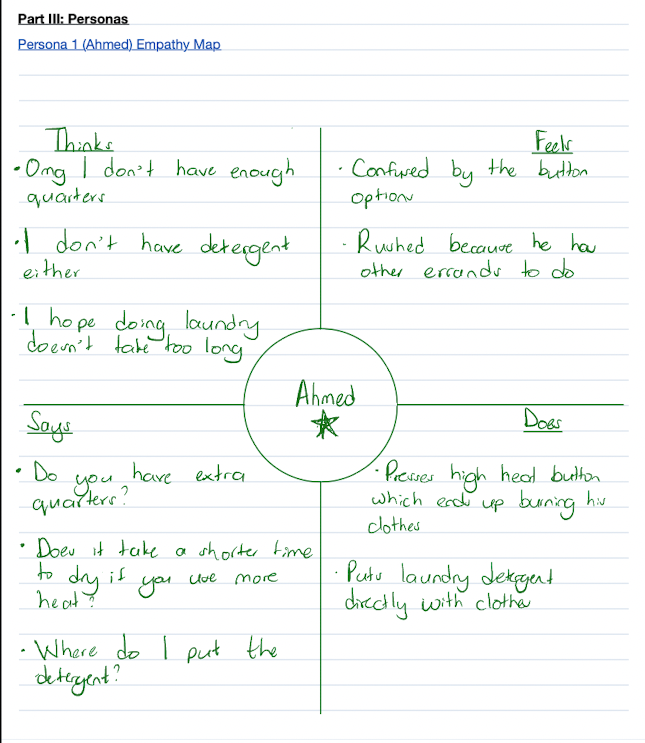 Part III: Personas
Persona 1 (Ahmed) Empathy Map
Thinks
• Omg I don't have enough
quarters
• I don't have detergent
either
• I hope doing laundry
doesn't take too long
Feels
• Confused by the button
options
• Rushed because he has
other errands to do
Ahmed
Says
• Do you have extra
quarters?
• Does it take a shorter time
to dry if you use more
heat?
• Where do I put the
detergent?
Does
• Presses high heat button
which ends up burning his
clothes
• Puts laundry detergent
directly with clothes